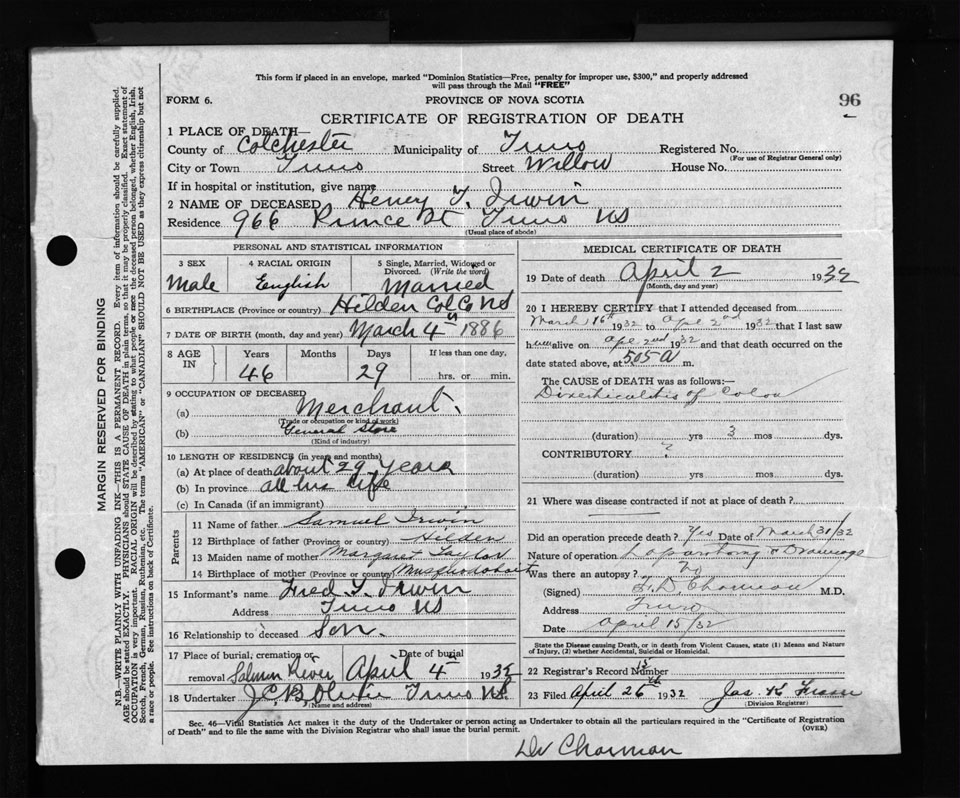 This form if placed in an envelope, marked "Dominion Statistics—Free, penalty for improper use, $300," and properly addressed
will pass through the Mail "FREE"
FORM 6.
PROVINCE OF NOVA SCOTIA
96
CERTIFICATE OF REGISTRATION OF DEATH
1 PLACE OF DEATH—
County of Colchester Municipality of Truro Registered No.
(For use of Registrar General only)
City or Town Truro Street Willow House No.
If in hospital or institution, give name
2 NAME OF DECEASED Henry T. Irwin
Residence 966 Prince St Truro NS
(Usual place of abode)
PERSONAL AND STATISTICAL INFORMATION
3 SEX 4 RACIAL ORIGIN 5 Single, Married, Widowed or
Divorced. (Write the word)
Male English Married
6 BIRTHPLACE (Province or country) Hilden Col Co NS
7 DATE OF BIRTH (month, day and year) March 4th 1886
8 AGE IN Years Months Days If less than one day,
46 29 hrs. or min.
9 OCCUPATION OF DECEASED
(a) Merchant.
(Trade or occupation or kind of work)
(b) General Store
(Kind of industry)
10 LENGTH OF RESIDENCE (in years and months)
(a) At place of death about 29 years
(b) In province all his life
(c) In Canada (if an immigrant)
Parents
11 Name of father Samuel Irwin
12 Birthplace of father (Province or country) Hilden
13 Maiden name of mother Margaret Taylor
14 Birthplace of mother (Province or country) Musquodoboit
15 Informant's name Fred T. Irwin
Address Truro NS
16 Relationship to deceased Son.
17 Place of burial, cremation or removal Salmon River Date of burial April 4th 1932
18 Undertaker J.C.B. Olive Truro NS
(Name and address)
MEDICAL CERTIFICATE OF DEATH
19 Date of death April 2 1932
(Month, day and year)
20 I HEREBY CERTIFY that I attended deceased from
March 16th 1932 to Apl 2nd 1932 that I last saw
him alive on Apl 2nd 1932 and that death occurred on the
date stated above, at 5.05 a m.
The CAUSE OF DEATH was as follows:—
Diverticulitis of Colon
(duration) yrs 3 mos dys.
CONTRIBUTORY ?
(duration) yrs. mos. dys.
21 Where was disease contracted if not at place of death?
Did an operation precede death? Yes Date of March 31/32
Nature of operation Laparotomy & Drainage
Was there an autopsy? No
(Signed) Charman M.D.
Address Truro
Date April 15/32
State the Disease causing Death, or in death from Violent Causes, state (1) Means and Nature
of Injury, (2) whether Accidental, Suicidal or Homicidal.
22 Registrar's Record Number 15
23 Filed April 26th 1932 Jas. K Fraser
(Division Registrar)
Sec. 46—Vital Statistics Act makes it the duty of the Undertaker or person acting as Undertaker to obtain all the particulars required in the "Certificate of Registration
of Death" and to file the same with the Division Registrar who shall issue the burial permit.
(OVER)
Dr Charman
MARGIN RESERVED FOR BINDING
N.B.—WRITE PLAINLY WITH UNFADING INK—THIS IS A PERMANENT RECORD. Every item of information should be carefully supplied.
AGE should be stated EXACTLY. PHYSICIANS should STATE CAUSE OF DEATH in plain terms, so that it may be properly classified. Exact statement of
OCCUPATION is very important. RACIAL ORIGIN will be described by stating to what people or race the deceased person belonged, whether English, Irish,
Scotch, French, German, Russian, Ruthenian, etc. The terms "AMERICAN" or "CANADIAN" SHOULD NOT BE USED as they express citizenship but not
a race or people. See instructions on back of Certificate.